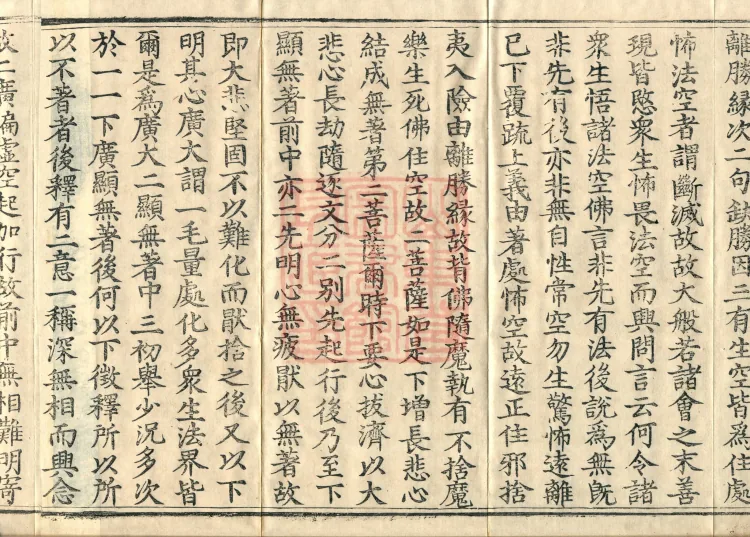 離勝緣次二句缺勝因三有生空皆為住處
怖法空者謂斷滅故故大般若諸會之末善
現皆愍衆生怖畏法空而興問言云何令諸
衆生悟諸法空佛言非先有法後說為無旣
非先有後亦非無自性常空勿生驚怖遠離
已下覆疏上義由著處怖空故遠正住邪捨
夷入險由離勝緣故背佛隨魔執有不捨魔
樂生死佛住空故二菩薩如是下增長悲心
結成無著第二菩薩爾時下要心拔濟以大
悲心長劫隨逐文分二別先起行後乃至下
顯無著前中亦二先明心無疲厭以無著故
即大悲堅固不以難化而猒捨之後又以下
明其心廣大謂一毛量處化多衆生法界皆
爾是為廣大二顯無著中三初舉少況多次
於一一下廣顯無著後何以下徵釋所以所
以不著者後釋有二意一稱深無相而興念
二廣徧虛空起加行故前中無相難明寄